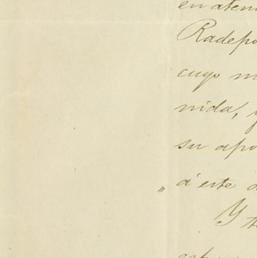 en aten
Radepo
cuyo m
nida, y
su apo
á este
Y